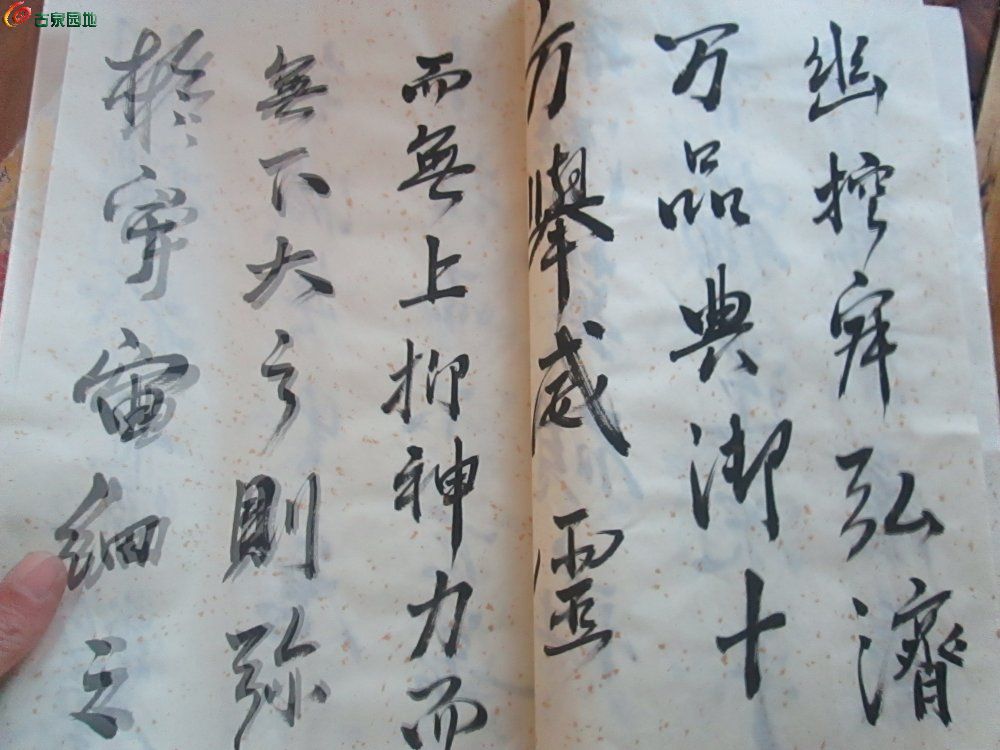 古泉园地
幽控寂弘濟
万品典御十
方舉威靈
而無上抑神力而
無下大之則弥
於宇宙細之